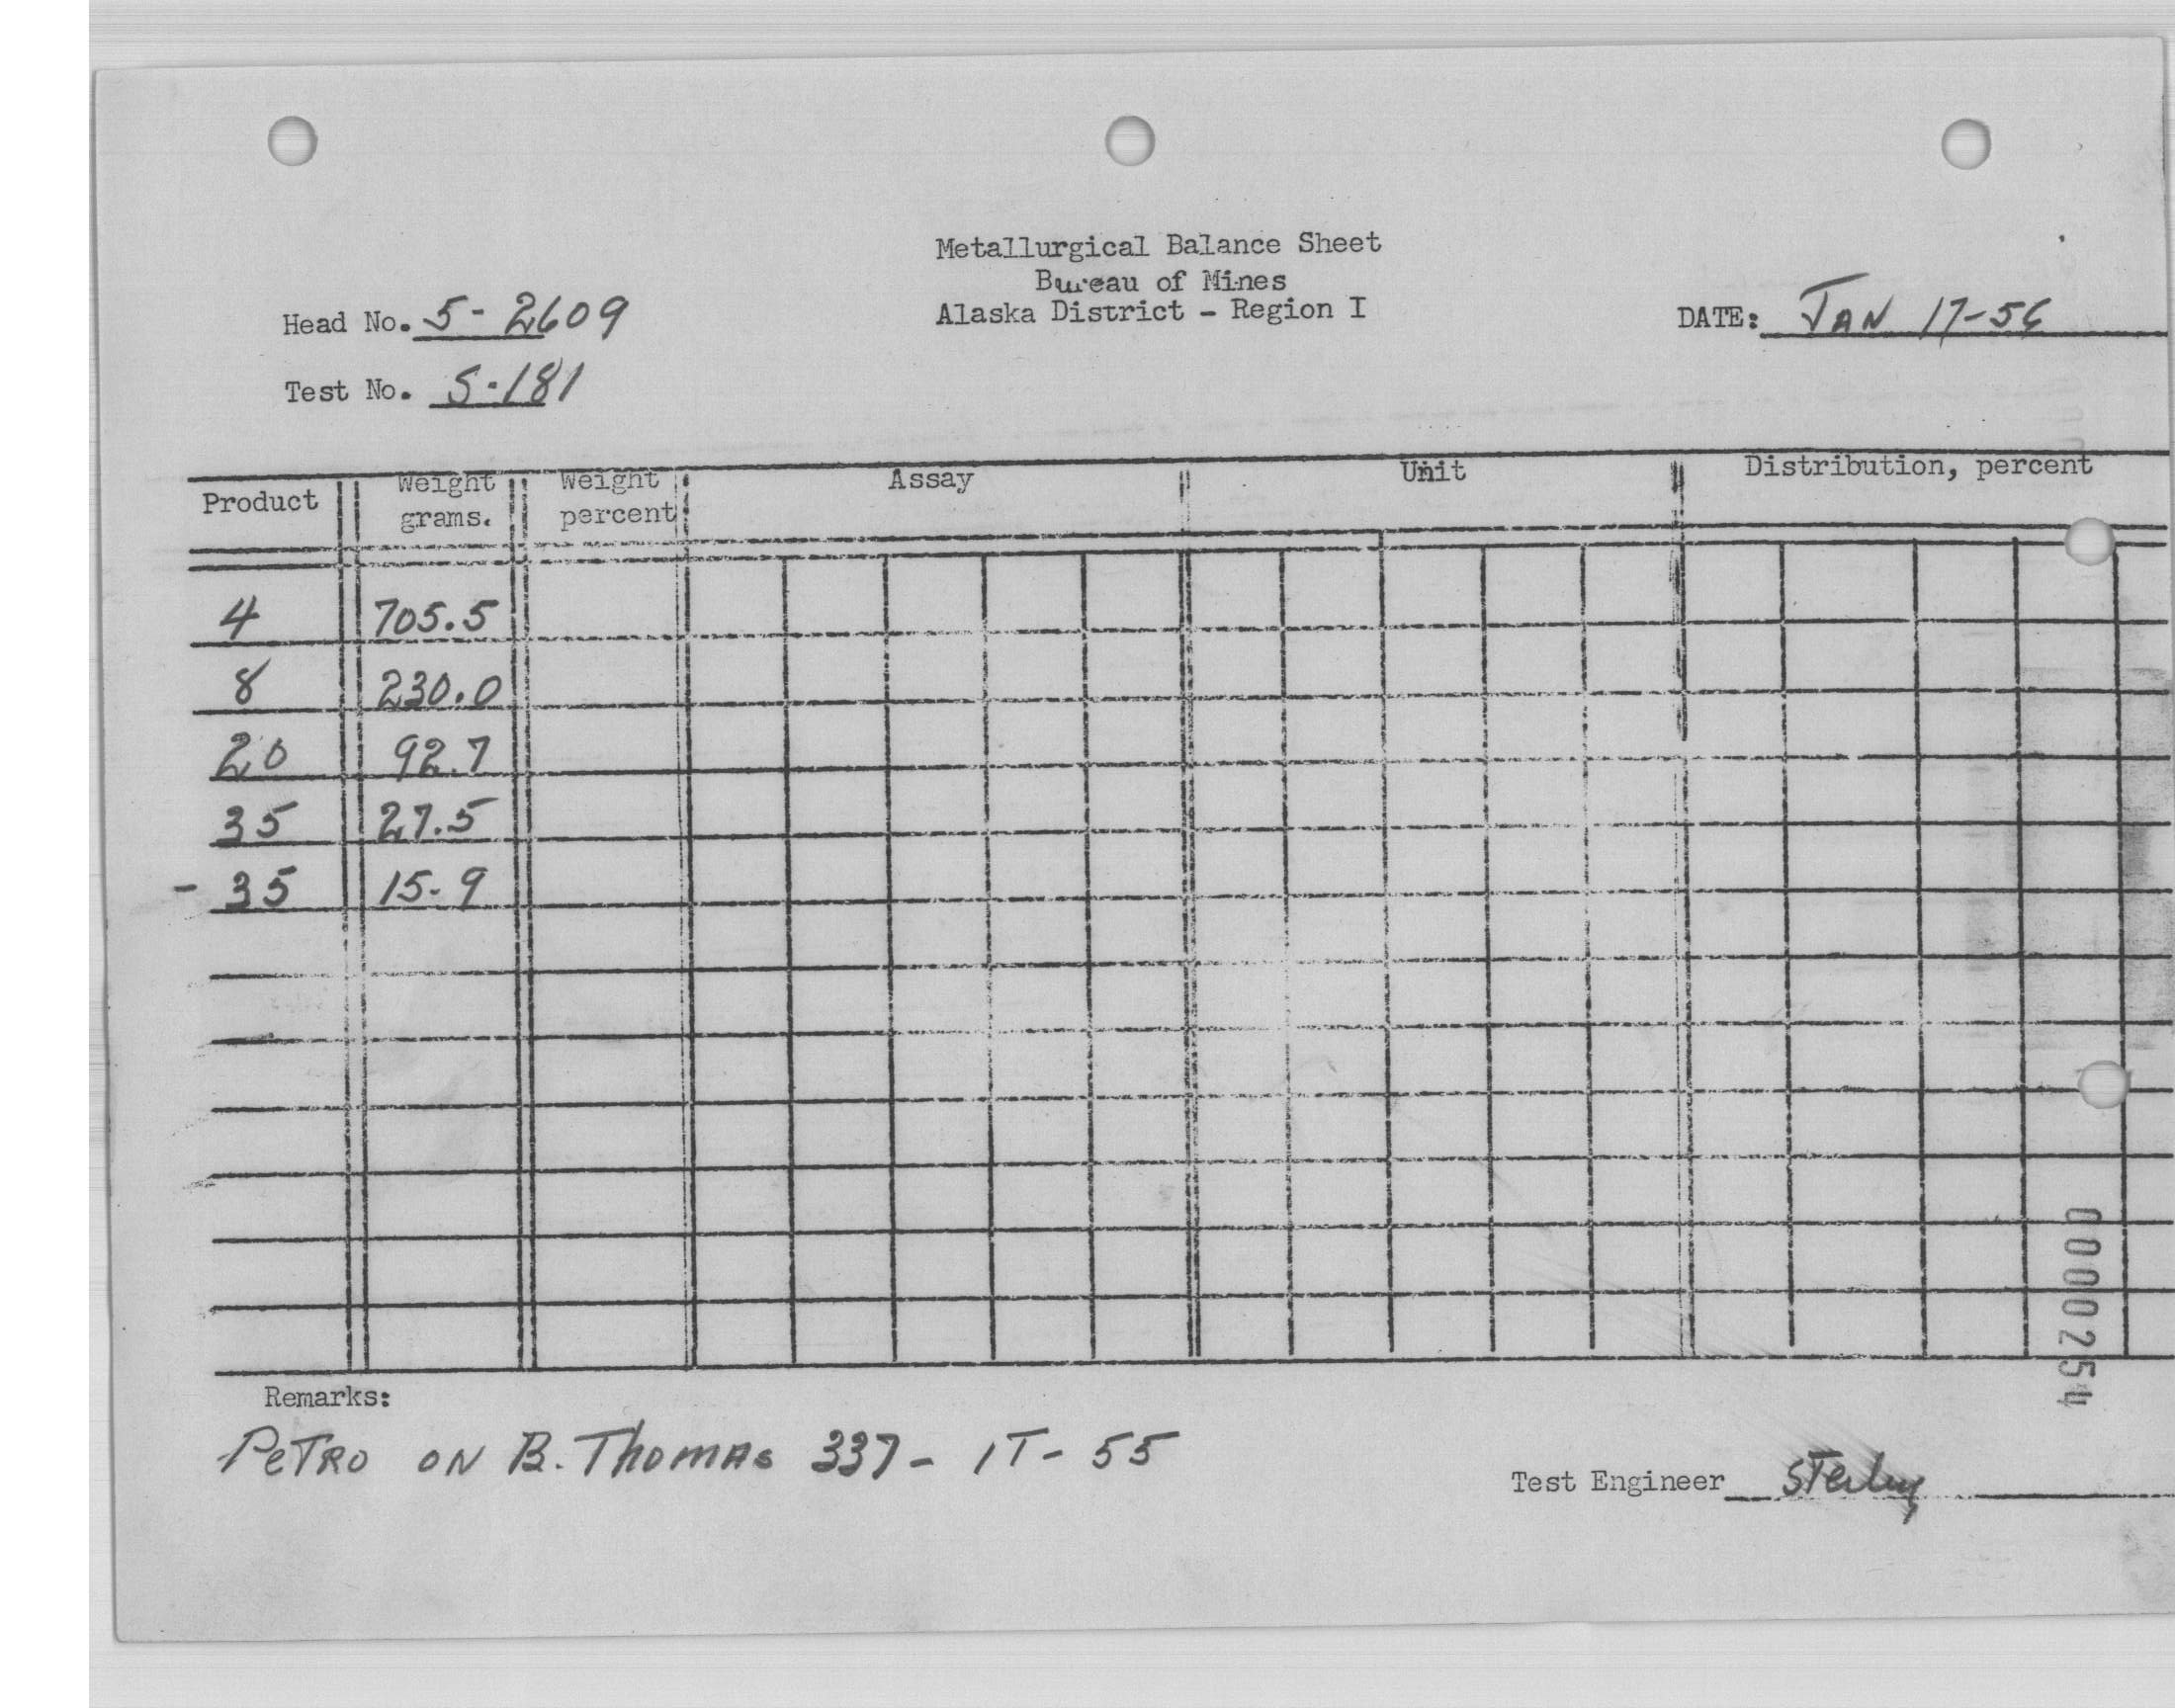 Metallurgical Balance Sheet
Bureau of Mines
Alaska District - Region I
Head No. 5-2609
DATE: JAN 17-56
Test No. S-181
Product Weight grams. Weight percent Assay Unit Distribution, percent
4 705.5
8 230.0
20 92.7
35 27.5
-35 15-9
0000254
Remarks:
PeTRO ON B. THOMAS 337- IT- 55
Test Engineer